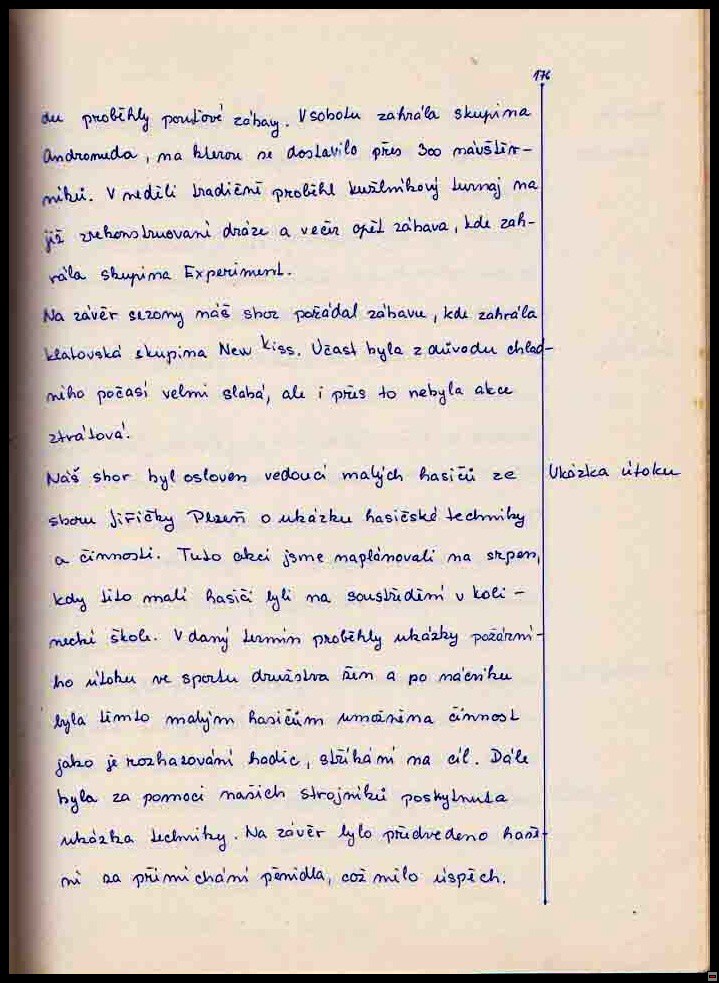 176
du proběhly pouťové zábavy. V sobotu zahrála skupina
Andromeda, na kterou se dostavilo přes 300 návštěv-
níků. V neděli tradičně proběhl kuželníkový turnaj na
již zrekonstruované dráze a večer opět zábava, kde zah-
rála skupina Experiment.
Na závěr sezony náš sbor pořádal zábavu, kde zahrála
klatovská skupina New Kiss. Účast byla z důvodu chlad-
ného počasí velmi slabá, ale i přes to nebyla akce
ztrátová.
Náš sbor byl osloven vedoucí malých hasičů ze
Ukázka útoku
sboru Jiřičky Plzeň o ukázku hasičské techniky
a činnosti. Tuto akci jsme naplánovali na srpen,
kdy tito malí hasiči byli na soustředění v koli-
necké škole. V daný termín proběhly ukázky požární-
ho útoku ve sportu družstva žen a po nácviku
byla těmto malým hasičům umožněna činnost
jako je rozhazování hadic, stříkání na cíl. Dále
byla za pomoci našich strojníků poskytnuta
ukázka techniky. Na závěr bylo předvedeno haše-
ní za přimíchání pěnidla, což mělo úspěch.